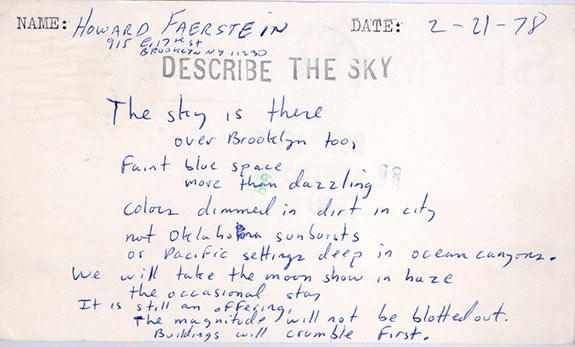 NAME: HOWARD FAERSTEIN DATE: 2-21-78
915 E. 17th St
BROOKLYN NY 11230
DESCRIBE THE SKY
The sky is there
over Brooklyn too,
Faint blue space
more than dazzling
colors dimmed in dirt in city
not Oklahoma sunbursts
or Pacific settings deep in ocean canyons.
We will take the moon show in haze
the occasional star
It is still an offering,
The magnitude will not be blotted out.
Buildings will crumble first.